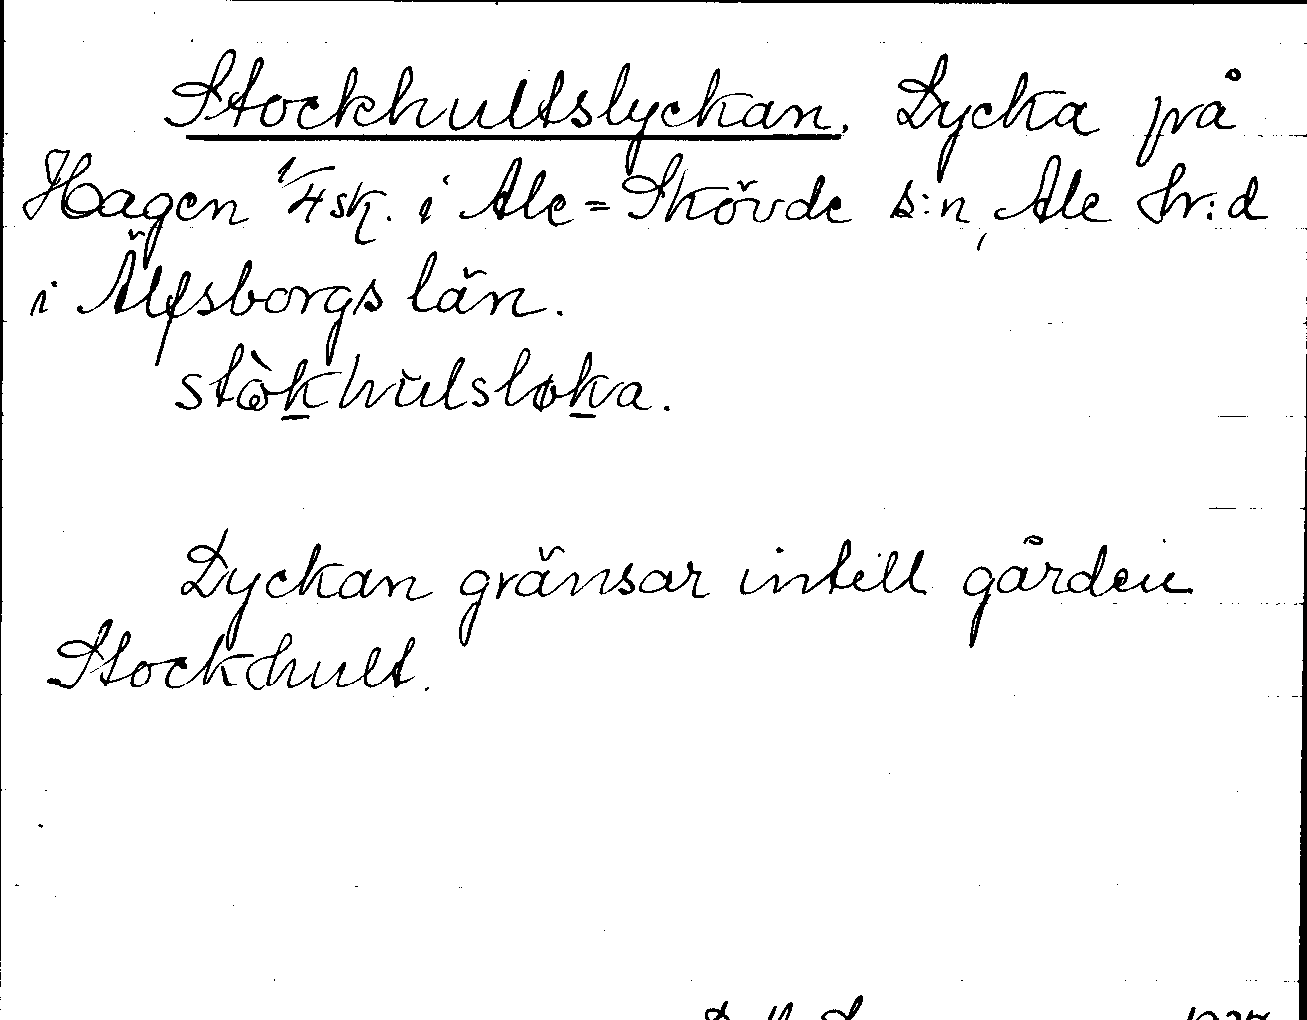 Stockhultslyckan. Lycka på
Hagen 1/4 sk. i Ale=Skövde s:n, Ale hr:d
i Älfsborgs län.
stòkhultsløka.
Lyckan gränsar intill gården
Stockhult.